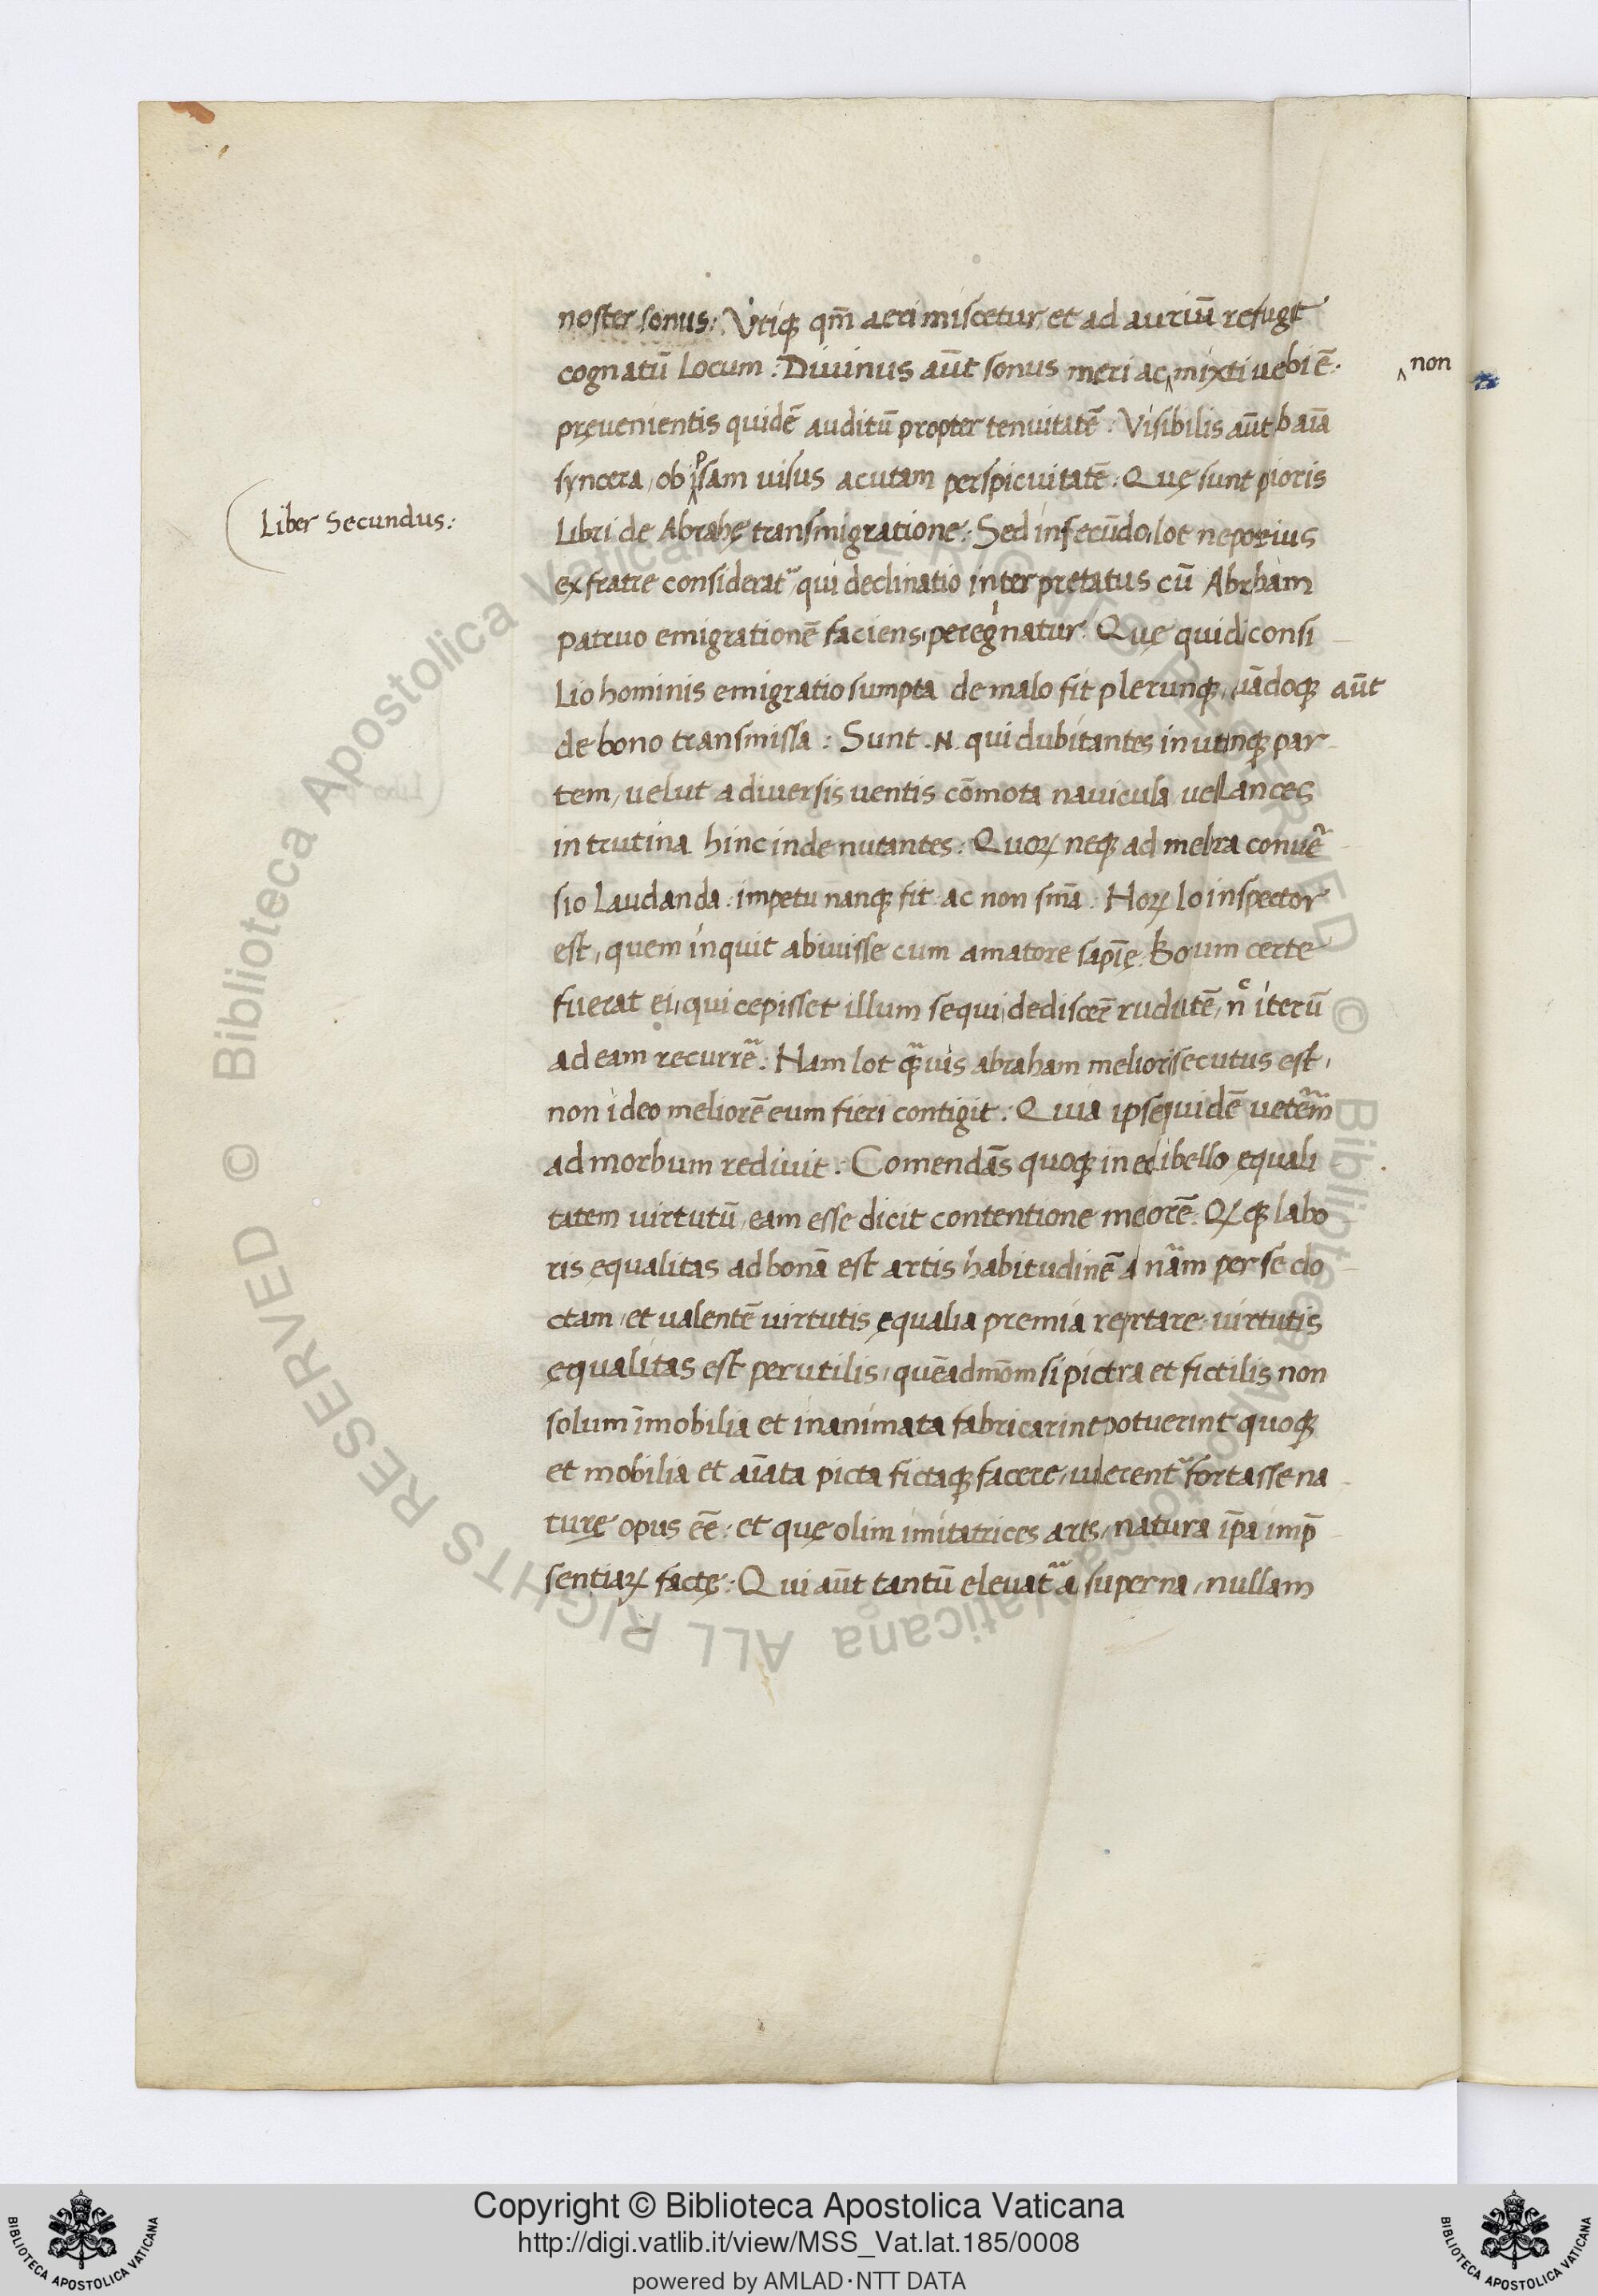 noster sonus: Vtiqꝫ qm̄ aeri miscetur, et ad auriū refugit
cognatū Locum: Diuinus aūt sonus meri ac ‸ mixti uebi ē.
‸ non
pręuenientis quidē auditū propter tenuitatē: Visibilis aūt b aīa
syncera, ob ipsam uisus acutam perspicuitatē: Quę sunt pioris
Liber Secundus:
Libri de Abrahę transmigratione: Sed in secūdo, lot nepos eius
ex fratre considerat᷑, qui declinatio interpretatus cū Abrham
patruo emigrationē faciens, pereginatur. Quę quid consi
lio hominis emigratio sumpta de malo fit plerunqꝫ, uādoqꝫ aūt
de bono transmissa: Sunt .N. qui dubitantes in utnqꝫ par
tem, uelut a diuersis uentis cōmota nauicula, uel Lances
in trutina hinc inde nutantes: Quoꝝ neqꝫ ad melra conuē
sio Laudanda: impetu nanqꝫ fit: ac non sm̄a: Hoꝝ lo inspector
est, quem inquit abiuisse cum amatore sapīę. Boum certe
fuerat ei, qui cepisset illum sequi, dediscerē ruditē, n̄ iterū
ad eam recurrē: Nam lot qꝫuis abraham melior secutus est,
non ideo meliorē eum fieri contigit: Quia ipse quidē uetēm
ad morbum rediuit: Comendās quoqꝫ in eo libello ęquali
tatem uirtutū, eam esse dicit contentione meorē: Qꝝ eqꝫ labo
ris equalitas ad bonā est artis habitudinē a nām per se do
ctam, et ualentē uirtutis ęqualia premia reprtare: uirtutis
ęqualitas est perutilis, quēadmōm si pictra et fictilis non
solum īmobilia et inanimata fabricarint potuerint quoqꝫ
et mobilia et aīata picta fictaqꝫ facere, uiderent᷑ fortasse na
turę opus eē: et quę olim imitatrices arts, natura ip̄a imp̄
sentiaꝝ factę: Qui aūt tantū eleuat᷑ a superna, nullam
Copyright © Biblioteca Apostolica Vaticana
http://digi.vatlib.it/view/MSS_Vat.lat.185/0008
powered by AMLAD·NTT DATA
BIBLIOTECA APOSTOLICA VATICANA
BIBLIOTECA APOSTOLICA VATICANA
© Biblioteca Apostolica Vaticana ALL RIGHTS RESERVED
© Biblioteca Apostolica Vaticana ALL RIGHTS RESERVED